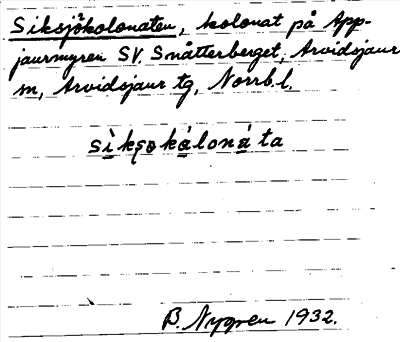 Siksjökolonaten, kolonat på App-
jaurmyren SV. Snåtterberget, Arvidsjaur
sn, Arvidsjaur tg, Norrb.l.
sìksọkálonáta
B. Nygren 1932.